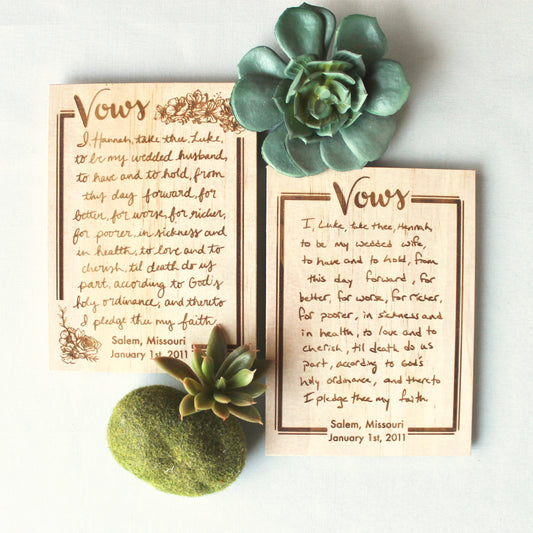 Vows
I, Hannah, take thee Luke,
to be my wedded husband,
to have and to hold, from
thy day forward, for
better, for worse, for richer,
for poorer, in sickness and
in health, to love and to
cherish, til death do us
part, according to God's
holy ordinance; and thereto
I pledge thee my faith
Salem, Missouri
January 1st, 2011
Vows
I, Luke, take thee, Hannah,
to be my wedded wife,
to have and to hold, from
this day forward, for
better, for worse, for richer,
for poorer, in sickness and
in health, to love and to
cherish, till death do us
part, according to God's
holy ordinance, and thereto
I pledge thee my faith.
Salem, Missouri
January 1st, 2011